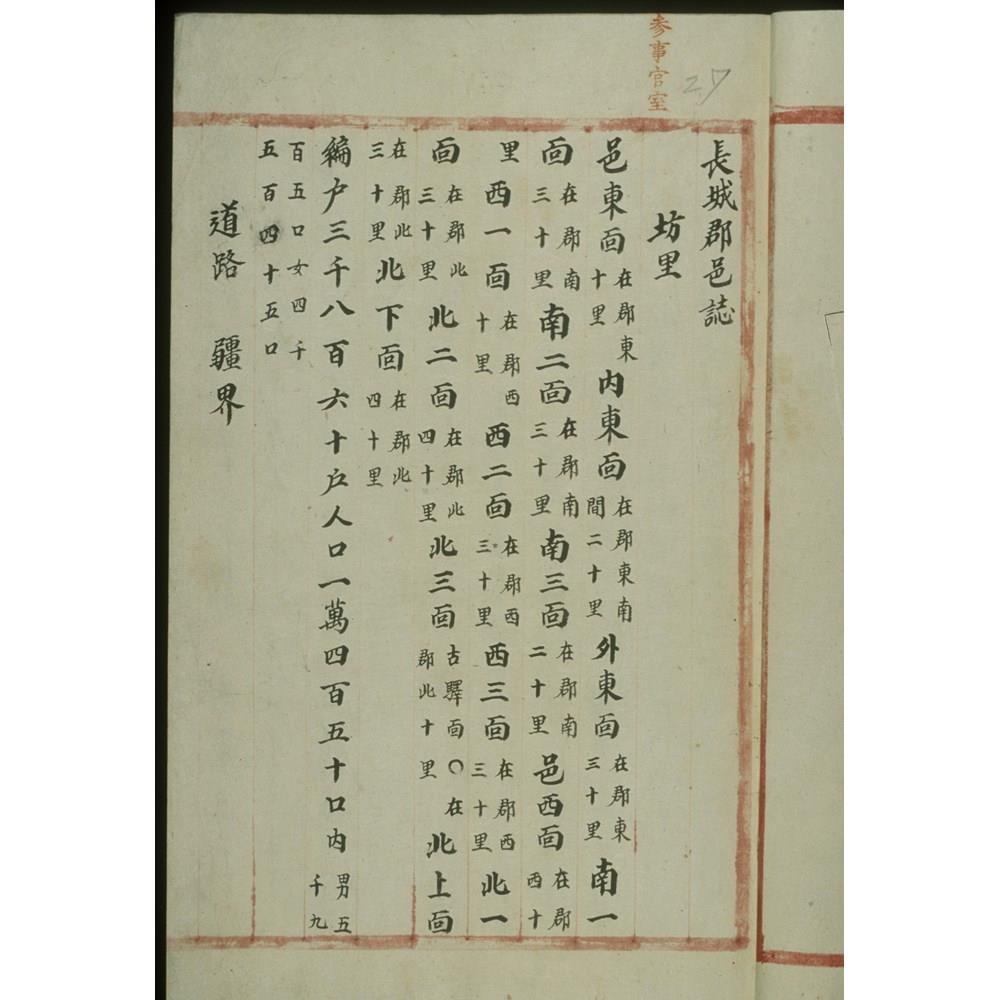 参事官室
27
長城郡邑誌
坊里
邑東面在郡東十里内東面在郡東南間二十里外東面在郡東三十里南一
面在郡南三十里南二面在郡南三十里南三面在郡南二十里邑西面在郡西十
里西一面在郡西十里西二面在郡西三十里西三面在郡西三十里北一
面在郡北三十里北二面在郡北四十里北三面古驛面○在郡北十里北上面
在郡北三十里北下面在郡北四十里
編户三千八百六十户人口一萬四百五十口内男五千九
百五口女四千五百四十五口
道路 疆界